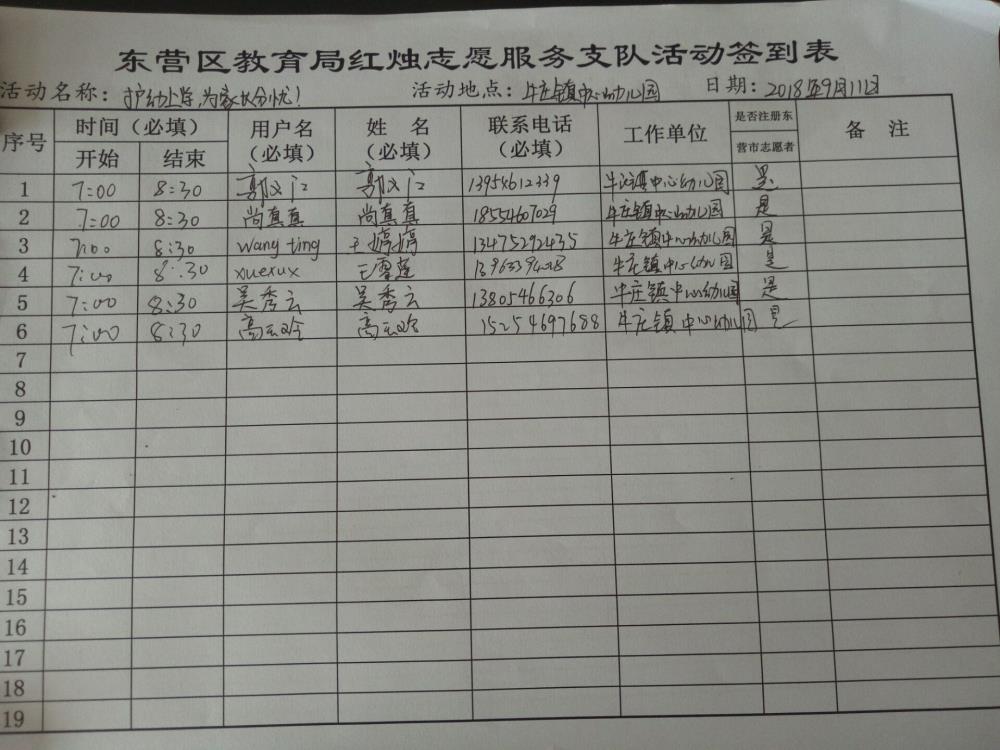 东营区教育局红烛志愿服务支队活动签到表
活动名称：护幼上学，为家长分忧！ 活动地点：牛庄镇中心幼儿园 日期：2018年9月11日
序号 时间（必填） 用户名（必填） 姓名（必填） 联系电话（必填） 工作单位 是否注册东营市志愿者 备注
开始 结束
1 7:00 8:30 郭文江 郭文江 13954612339 牛庄镇中心幼儿园 是
2 7:00 8:30 尚真真 尚真真 18554607029 牛庄镇中心幼儿园 是
3 7:00 8:30 wang ting 王婷婷 13475292435 牛庄镇中心幼儿园 是
4 7:00 8:30 xuexux 王雪莲 牛庄镇中心幼儿园 是
5 7:00 8:30 吴秀云 吴秀云 13805466306 牛庄镇中心幼儿园 是
6 7:00 8:30 15254697688 牛庄镇中心幼儿园 是
7
8
9
10
11
12
13
14
15
16
17
18
19